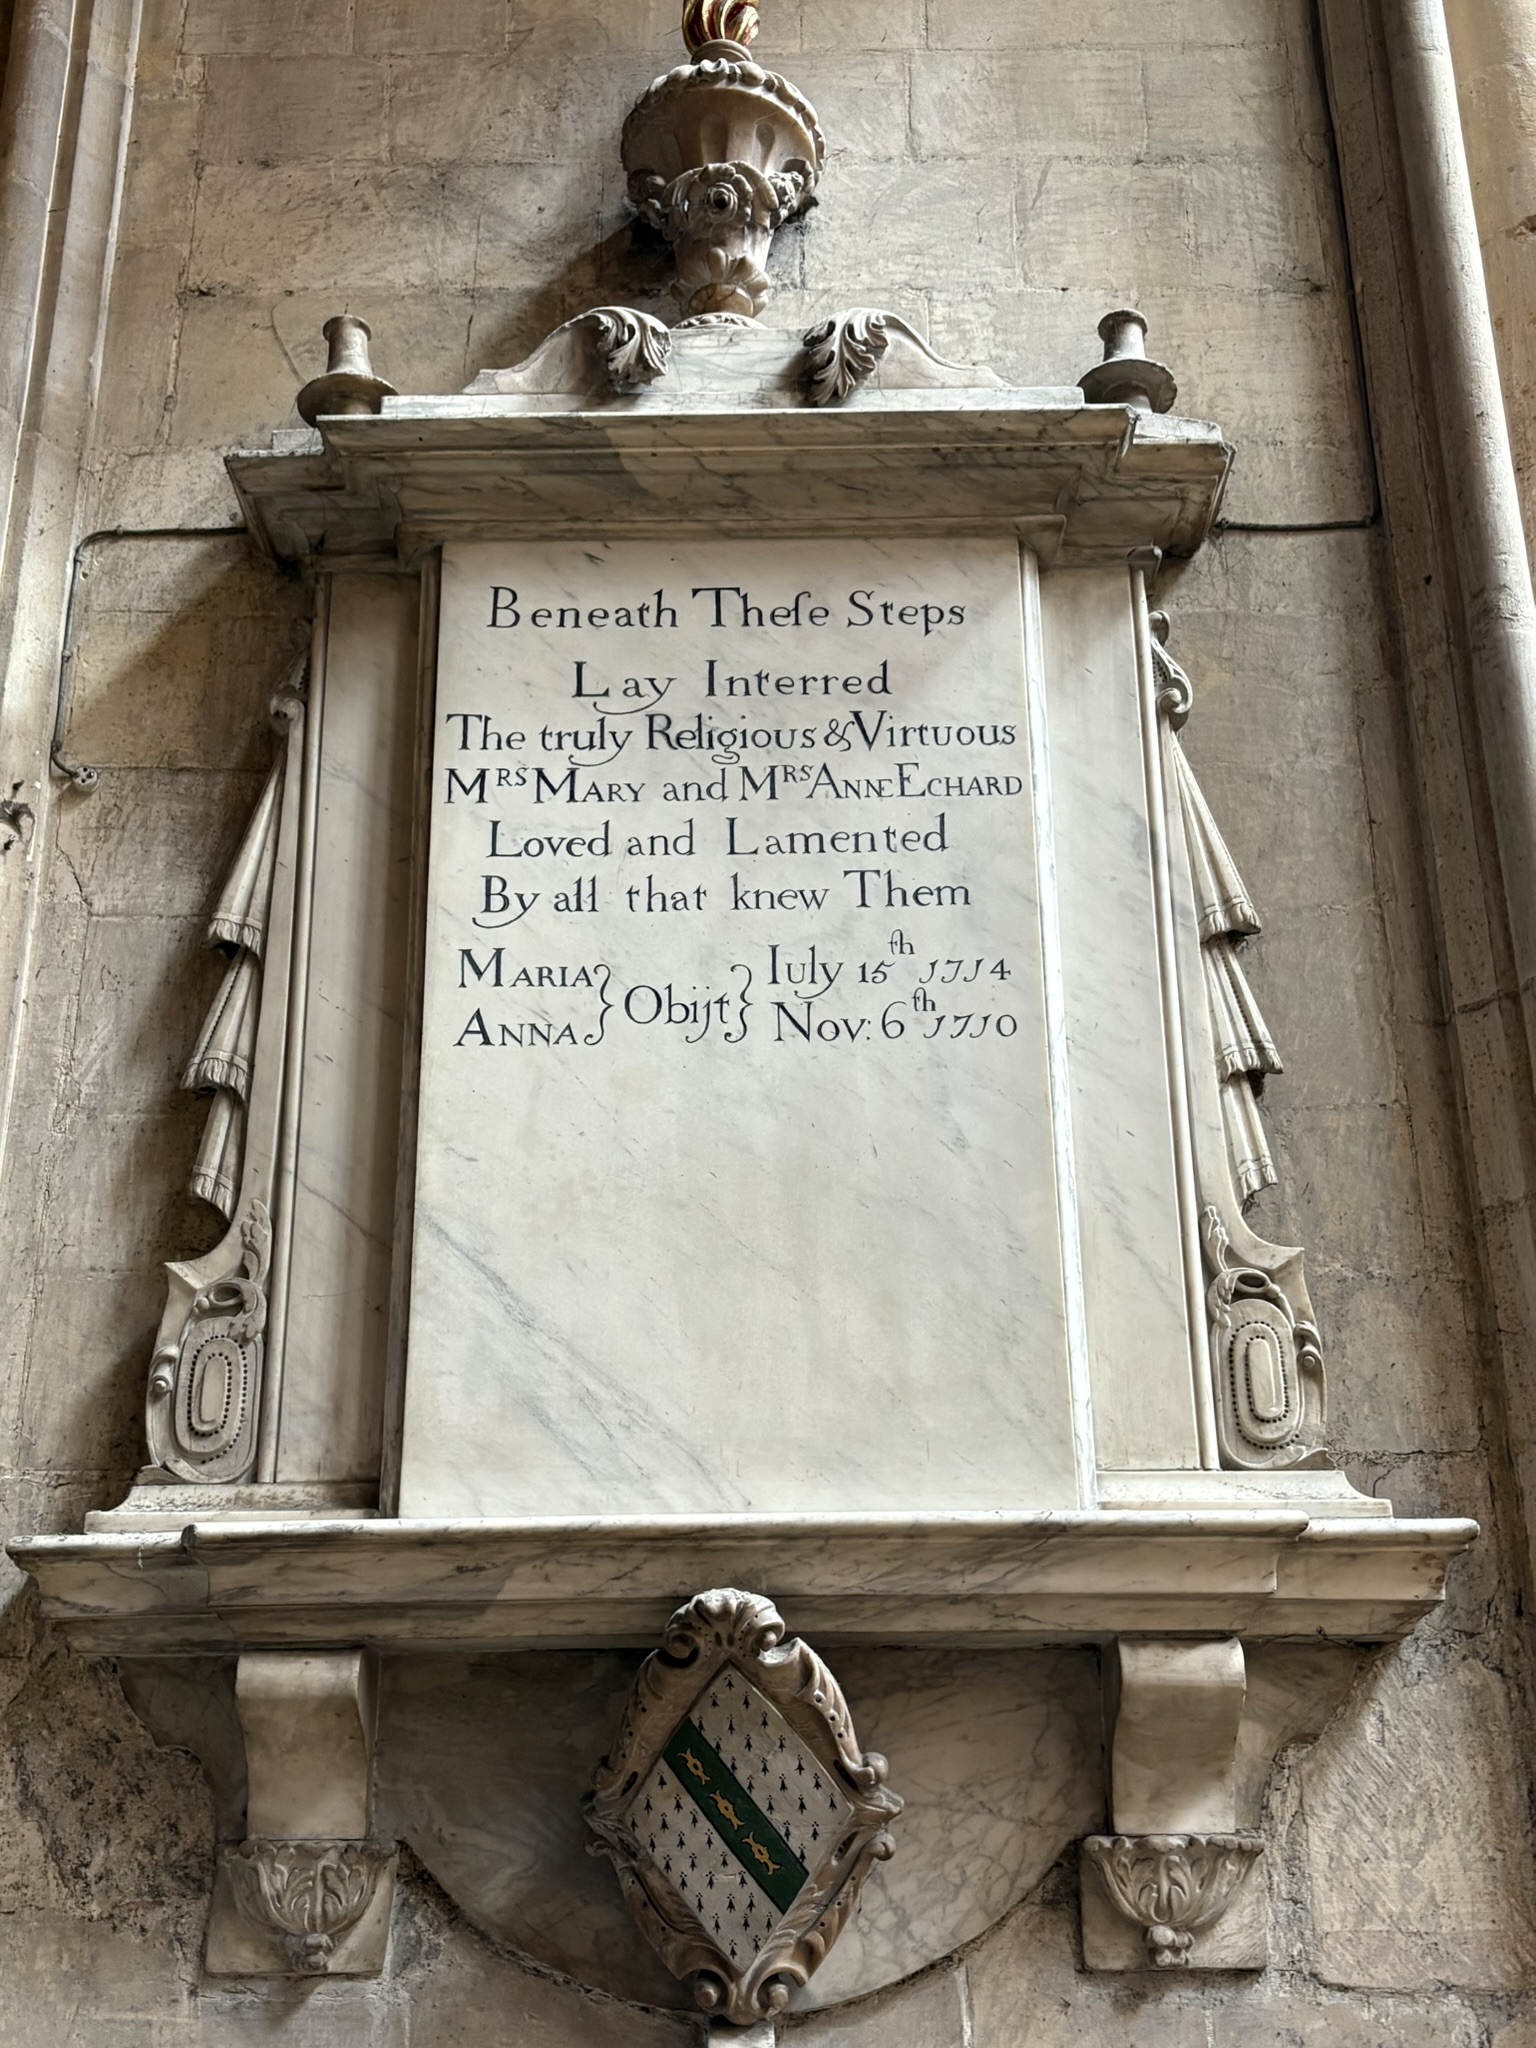 Beneath Theſe Steps
Lay Interred
The truly Religious & Virtuous
Mrs Mary and Mrs Anne Echard
Loved and Lamented
By all that knew Them
Maria } Obijt } Iuly 15th 1714
Anna } Obijt } Nov: 6th 1710